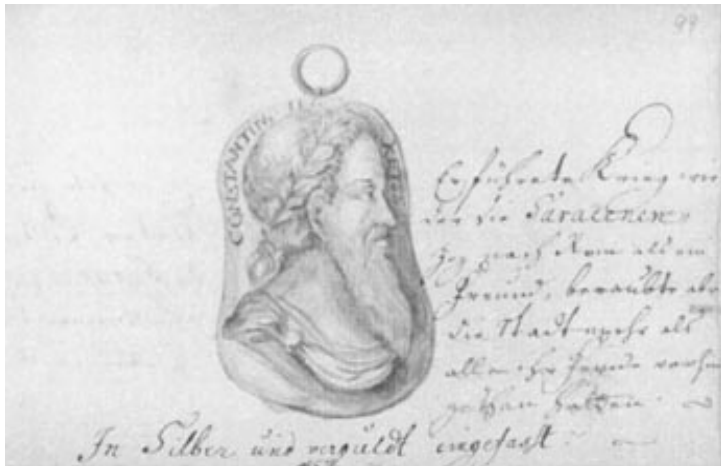 99
CONSTANTINUS II
Er führete Krieg wie
der die Saracenen,
zog nach Rom als ein
Freund, beraubte abe
die Stadt mehr als
alle ihre Feinde vorhin
gethan hatten.
In Silber und verguldt eingefast.